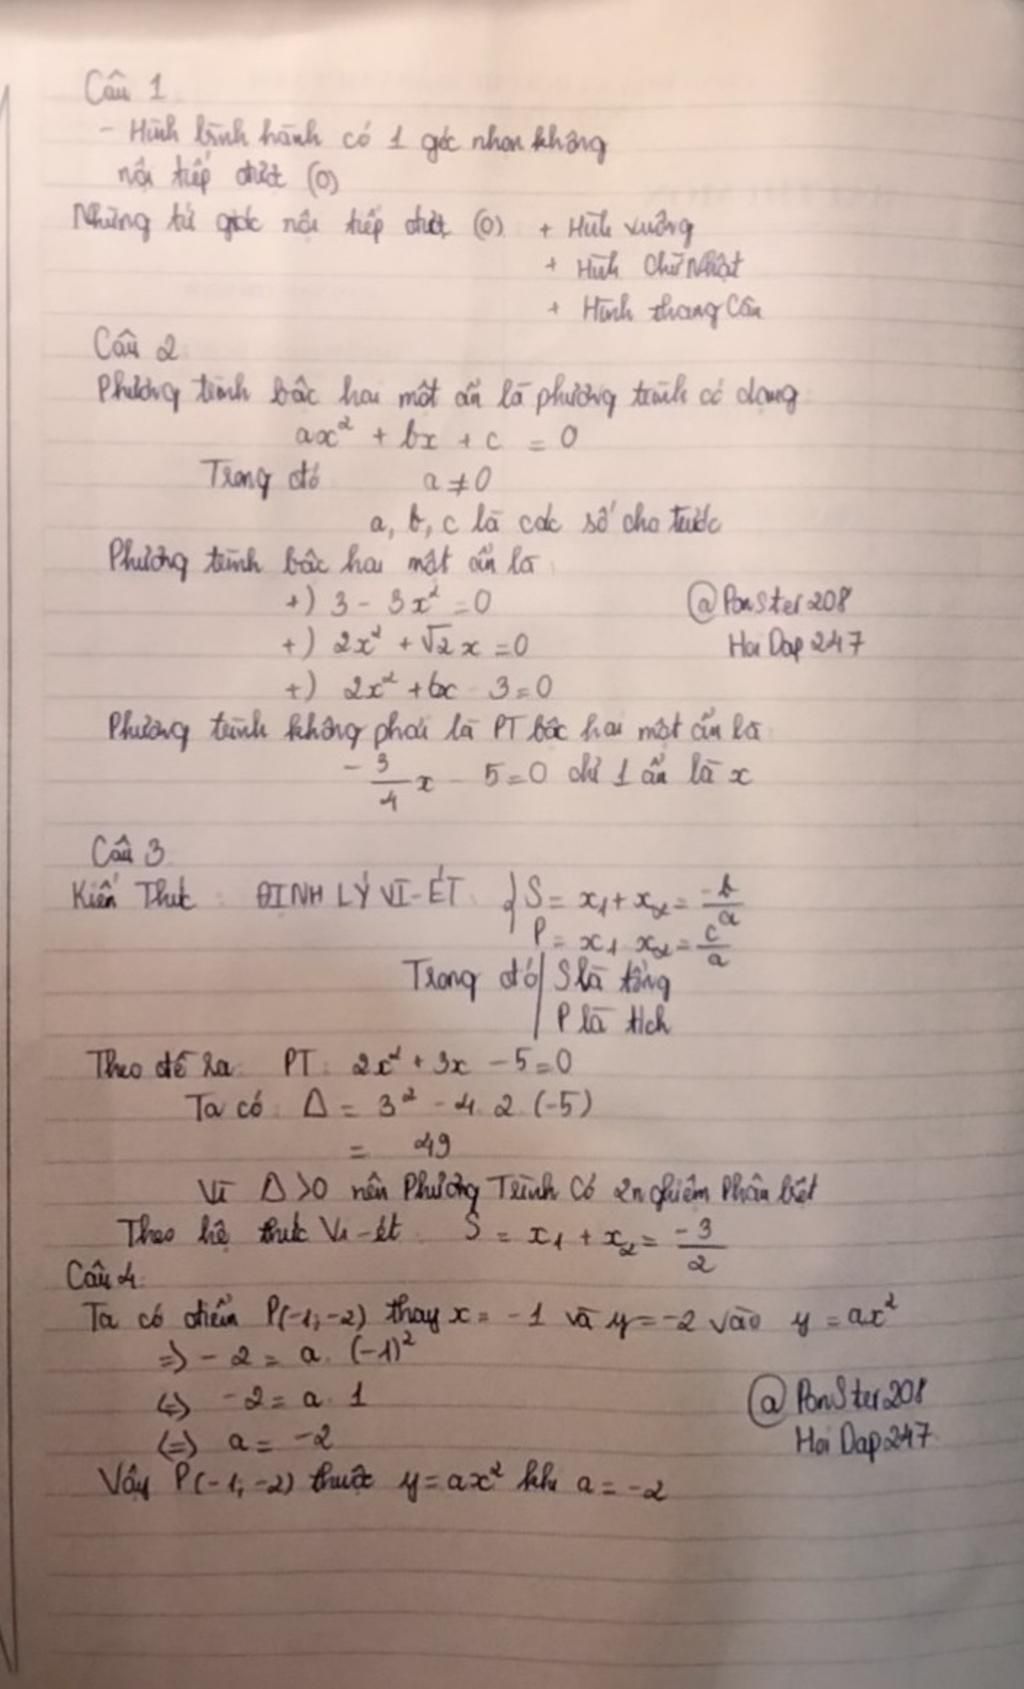 Câu 1
- Hình bình hành có 1 góc nhọn không
nội tiếp được (O)
Những tứ giác nội tiếp được (O) + Hình vuông
+ Hình Chữ Nhật
+ Hình thang Cân
Câu 2
Phương trình bậc hai một ẩn là phương trình có dạng
ax² + bx + c = 0
Trong đó a ≠ 0
a, b, c là các số cho trước
Phương trình bậc hai một ẩn là
+) 3 - 3x² = 0 @PonSter208
+) 2x² + √2 x = 0 Hoi Dap 247
+) 2x² + 6x - 3 = 0
Phương trình không phải là PT bậc hai một ẩn là
- 3/4 x - 5 = 0 chỉ 1 ẩn là x
Câu 3
Kiến Thức: ĐỊNH LÝ VI-ÉT { S = x₁ + x₂ = -b/a
P = x₁ x₂ = c/a
Trong đó | S là tổng
| P là tích
Theo đề ra: PT: 2x² + 3x - 5 = 0
Ta có: Δ = 3² - 4. 2. (-5)
= 49
Vì Δ > 0 nên Phương Trình Có 2 nghiệm Phân biệt
Theo hệ thức Vi-ét S = x₁ + x₂ = -3/2
Câu 4:
Ta có điểm P(-1; -2) thay x = -1 và y = -2 vào y = ax²
=> - 2 = a. (-1)²
<=> -2 = a. 1 @PonSter208
<=> a = -2 Hoi Dap 247
Vậy P(-1; -2) thuộc y = ax² khi a = -2